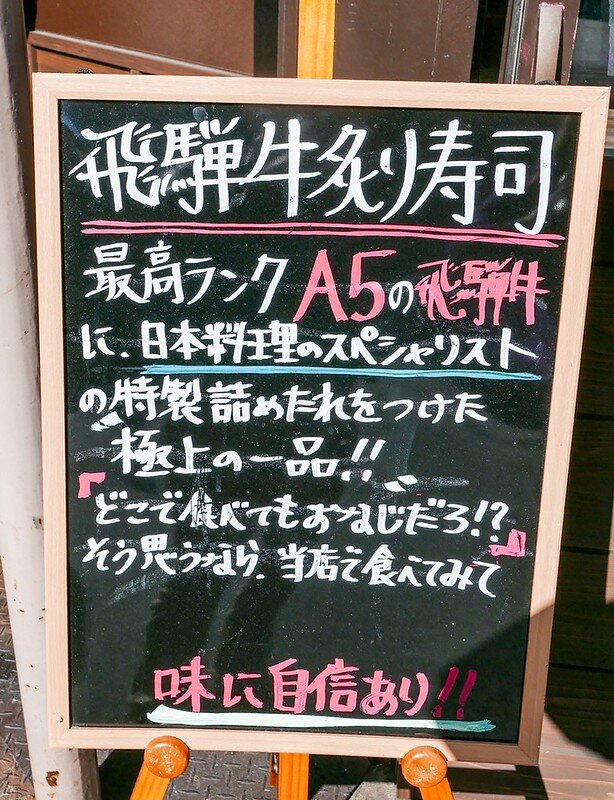 飛騨牛炙り寿司
最高ランクA5の飛騨牛
に、日本料理のスペシャリスト
の特製詰めたれをつけた
"極上の一品!!"
「どこで食べてもおなじだろ!?」
そう思うなら、当店で食べてみて
味に自信あり!!